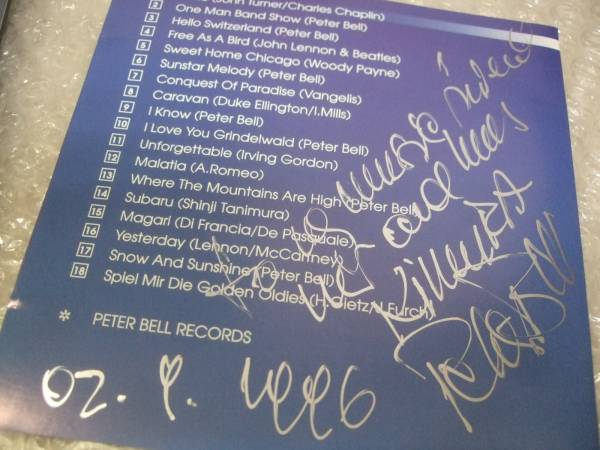 (John Turner/Charles Chaplin)
2 One Man Band Show (Peter Bell)
3 Hello Switzerland (Peter Bell)
4 Free As A Bird (John Lennon & Beatles)
5 Sweet Home Chicago (Woody Payne)
6 Sunstar Melody (Peter Bell)
7 Conquest Of Paradise (Vangelis)
8 Caravan (Duke Ellington/I.Mills)
9 I Know (Peter Bell)
10 I Love You Grindelwald (Peter Bell)
11 Unforgettable (Irving Gordon)
12 Malatia (A.Romeo)
13 Where The Mountains Are High (Peter Bell)
14 Subaru (Shinji Tanimura)
15 Magari (Di Francia/De Pasquale)
16 Yesterday (Lennon/McCartney)
17 Snow And Sunshine (Peter Bell)
18 Spiel Mir Die Golden Oldies (H.Gietz/N.Furch)
* PETER BELL RECORDS
music
and
Peter Bell
02. 9. 1996